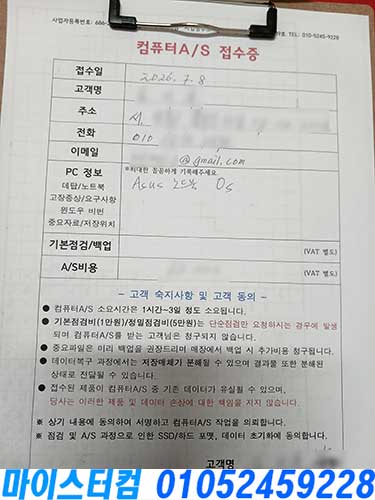 사업자등록번호: 686-
TEL: 010-5245-9228
컴퓨터A/S 접수증
접수일 2026. 7. 8
고객명
주소
전화 010
이메일 @gmail.com
PC 정보 ※최대한 꼼꼼하게 기록해주세요.
데탑/노트북 Asus 노트북 Os
고장증상/요구사항
윈도우 비번
중요자료/저장위치
기본점검/백업 (VAT 별도)
A/S비용 (VAT 별도)
- 고객 숙지사항 및 고객 동의 -
● 컴퓨터A/S 소요시간은 1시간~3일 정도 소요됩니다.
● 기본점검비(1만원)/정밀점검비(5만원)는 단순점검만 요청하시는 경우에 발생
되며 컴퓨터A/S를 받는 고객님은 청구되지 않습니다.
● 중요파일은 미리 백업을 권장드리며 매장에서 백업 시 추가비용 청구됩니다.
● 데이터복구 과정에서는 저장매체가 분해될 수 있으며 결과물 또한 분해된
상태로 전달될 수 있습니다.
● 접수된 제품이 컴퓨터A/S 중 기존 데이터가 유실될 수 있으며,
당사는 이러한 제품 및 데이터 손상에 대한 책임을 지지 않습니다.
※ 상기 내용에 동의하여 서명하고 컴퓨터A/S 작업을 의뢰합니다.
※ 점검 및 A/S 과정으로 인한 SSD/하드 포맷, 데이터 초기화에 동의합니다.
고객명
마이스터컴 01052459228